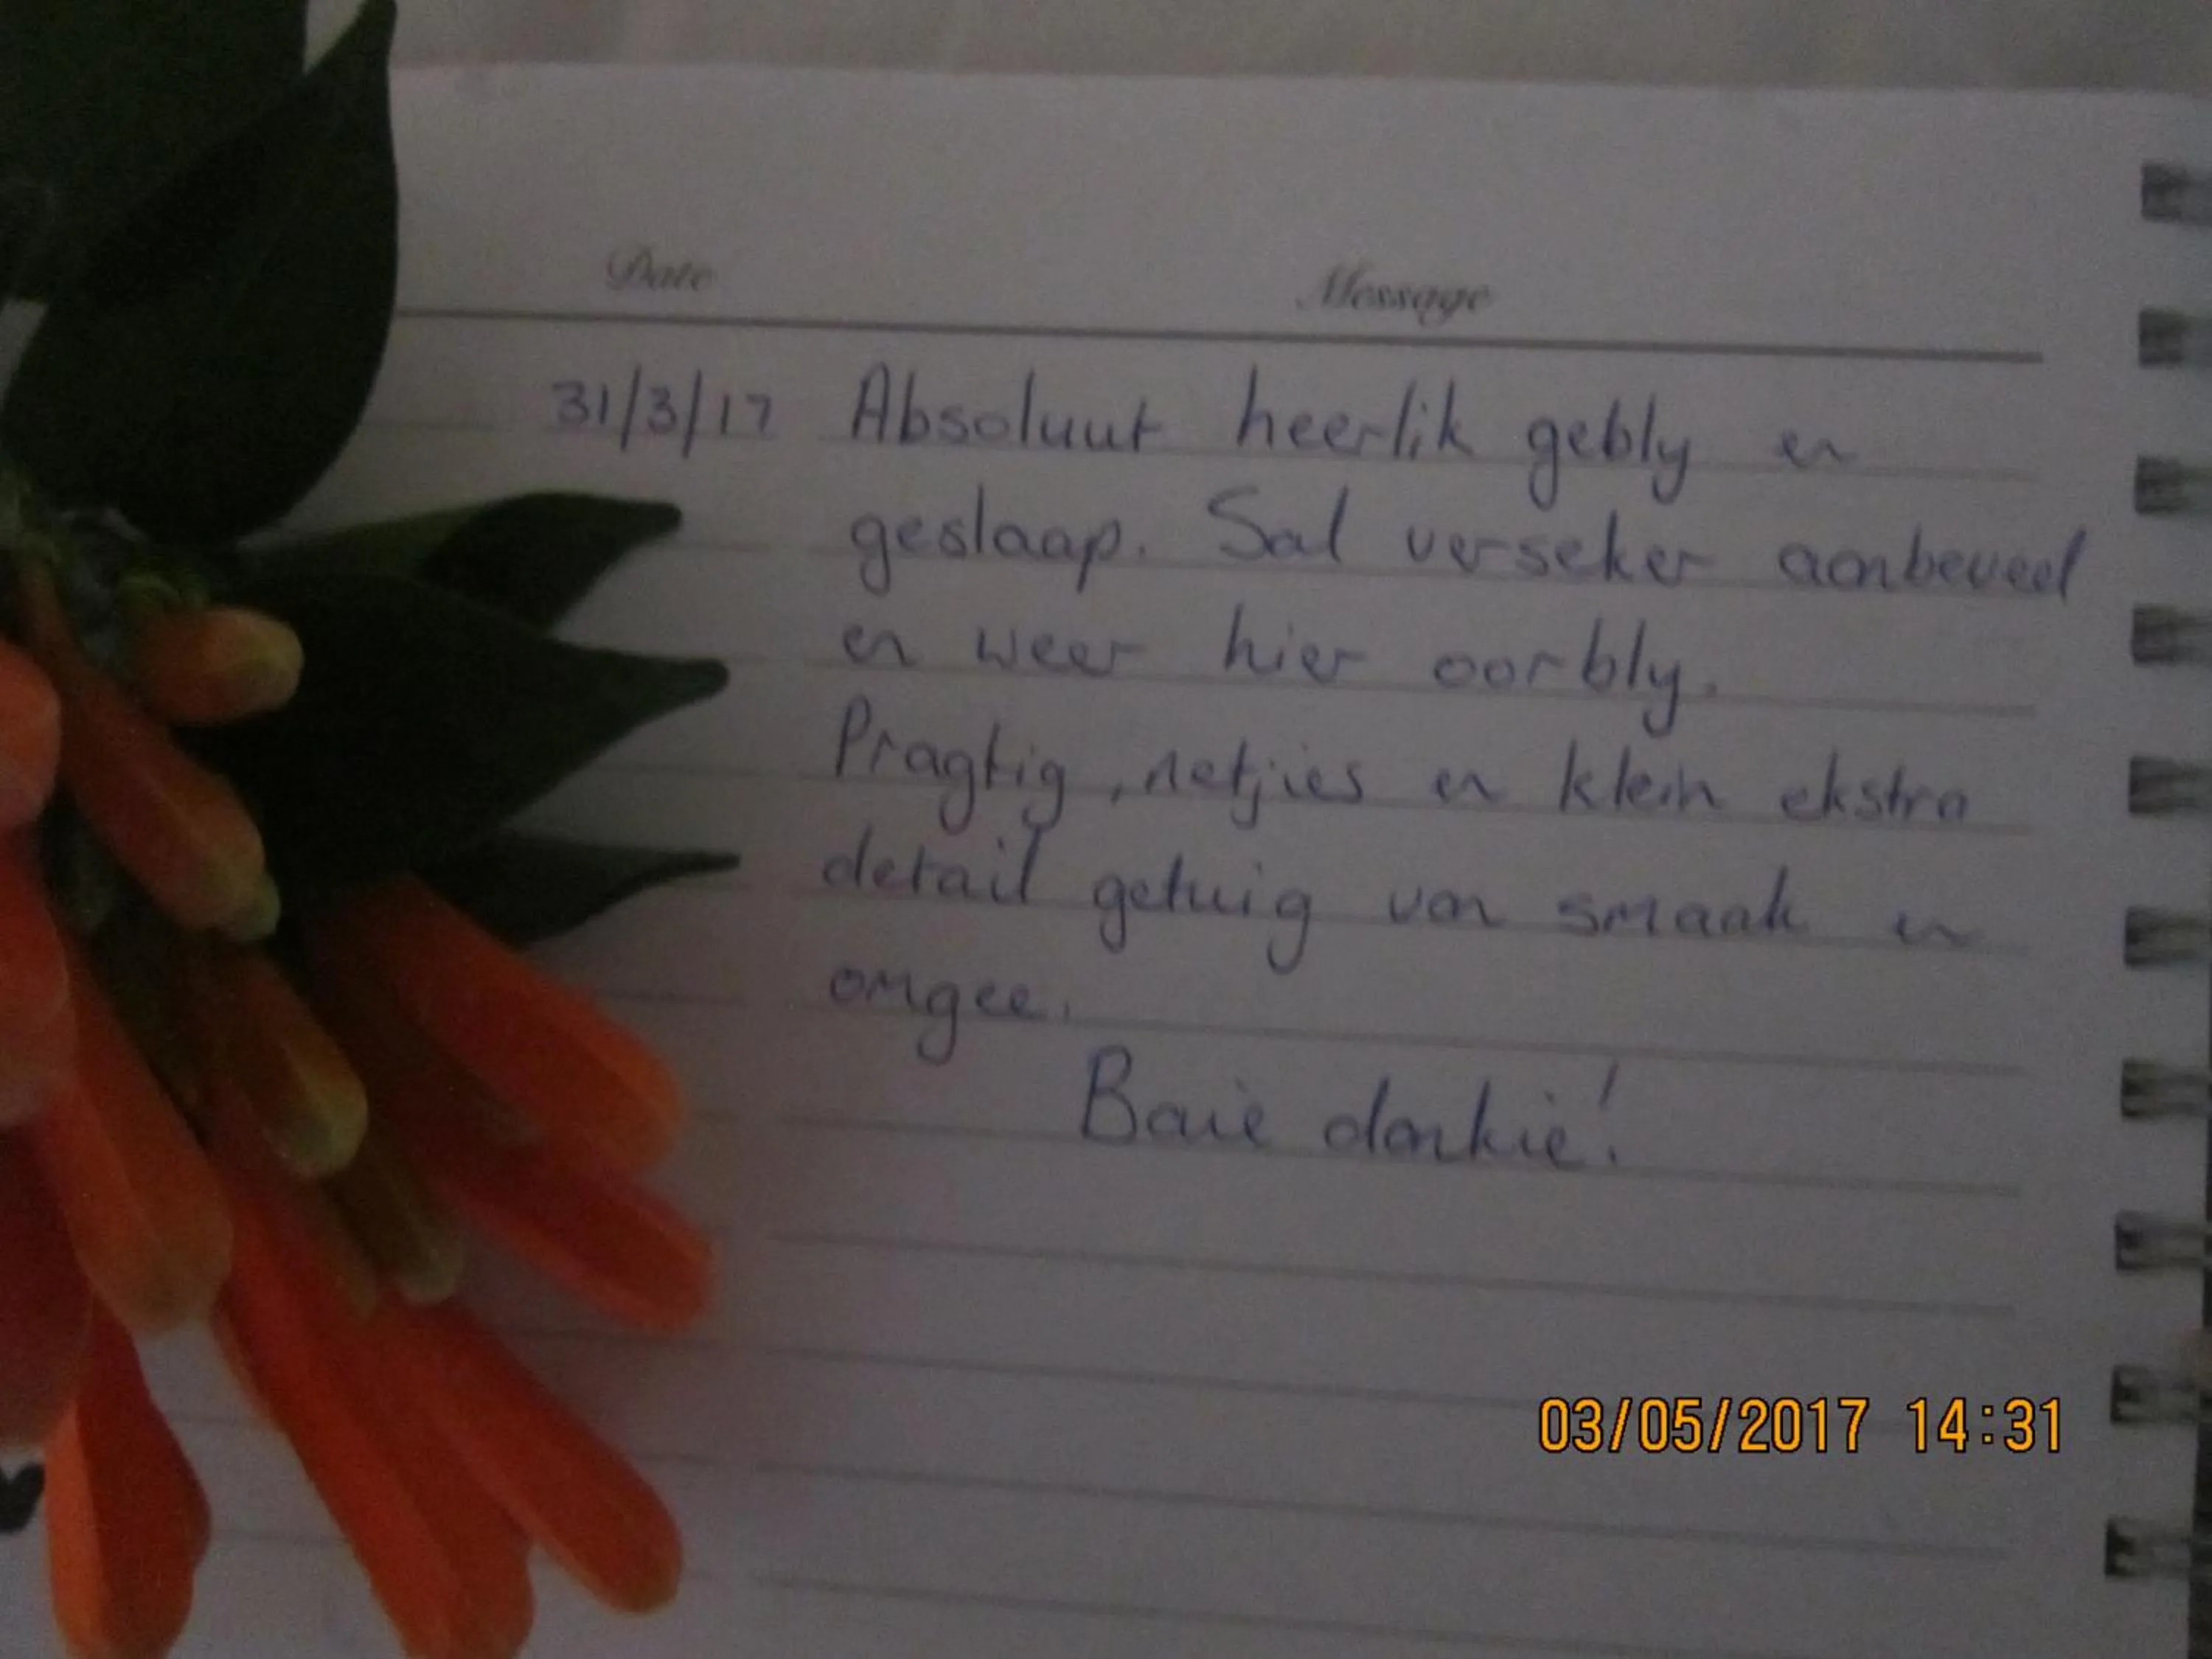 Date Message
31/3/17 Absoluut heerlik gebly en
geslaap. Sal verseker aanbeveel
en weer hier oorbly.
Pragtig, netjies en klein ekstra
detail getuig van smaak en
omgee.
Baie dankie!
03/05/2017 14:31